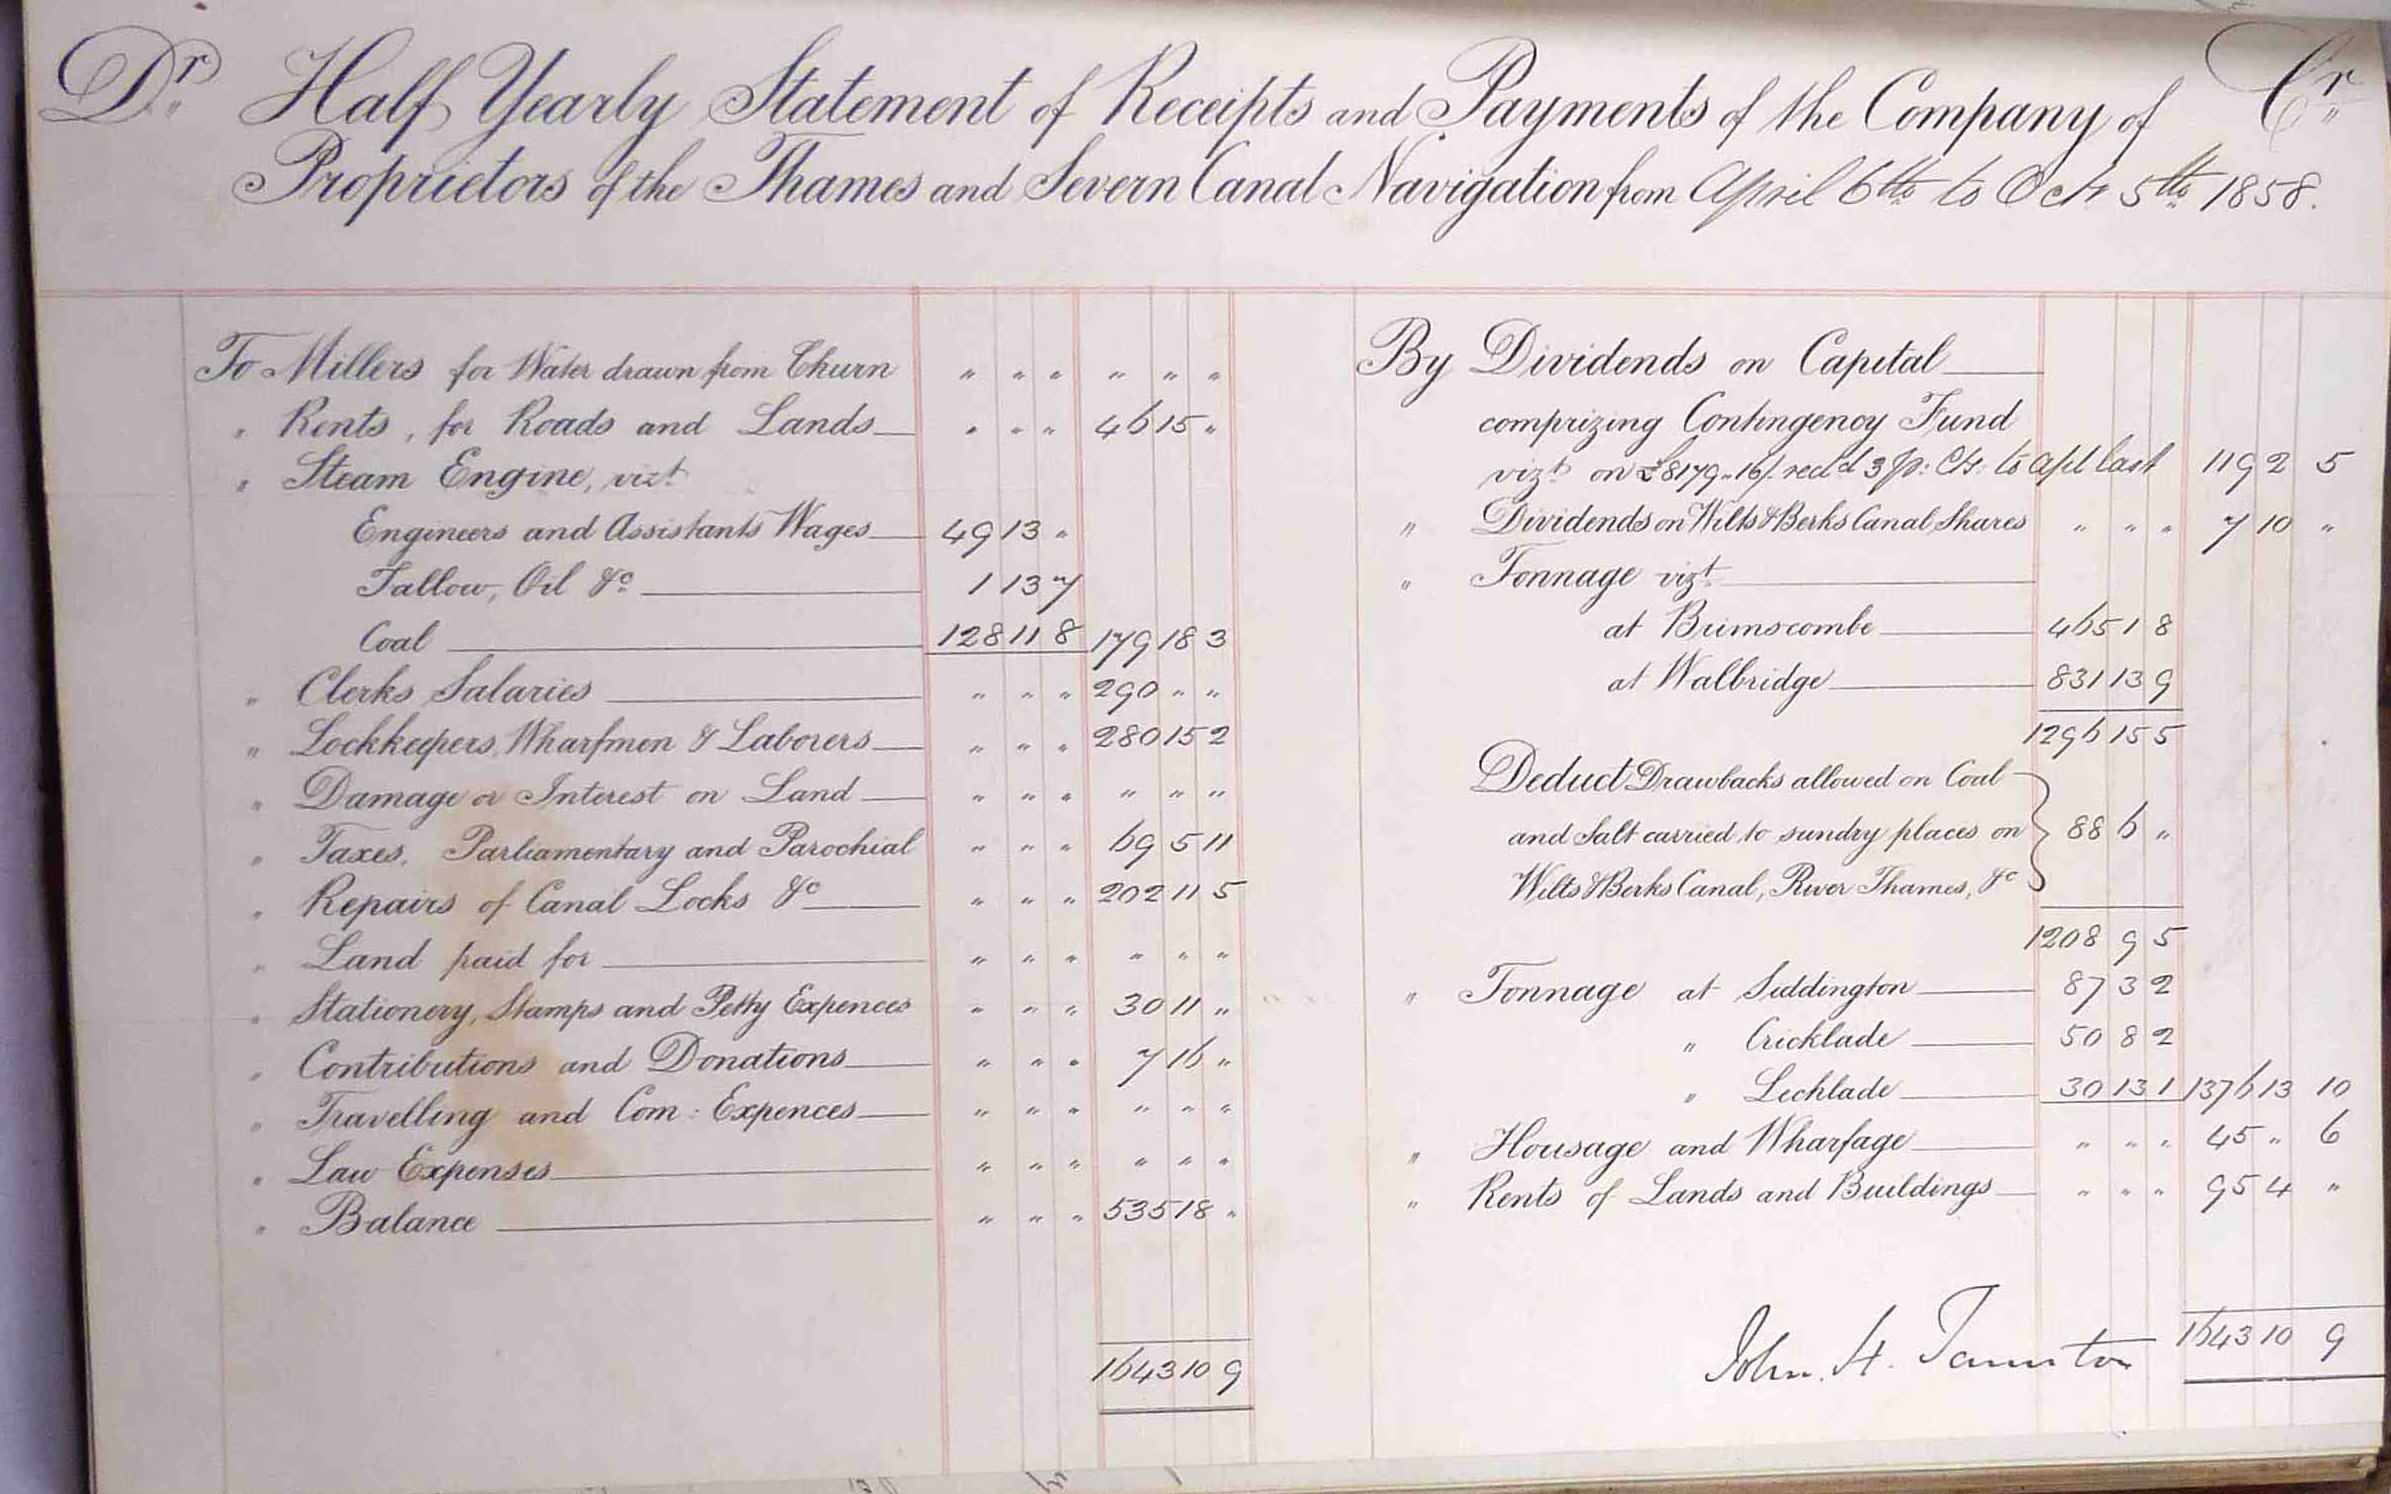 Dr Half Yearly Statement of Receipts and Payments of the Company of Cr
Proprietors of the Thames and Severn Canal Navigation from April 6th to Oct 5th 1858.
To Millers for Water drawn from Churn " " " " " "
" Rents, for Roads and Lands " " " 46 15 "
" Steam Engine, vizt
Engineers and Assistants Wages 49 13 "
Tallow, Oil &c 1 13 7
Coal 128 11 8 179 18 3
" Clerks Salaries " " " 290 " "
" Lockkeepers, Wharfmen & Laborers " " " 280 15 2
" Damage or Interest on Land " " " " " "
" Taxes, Parliamentary and Parochial " " " 69 5 11
" Repairs of Canal Locks &c " " " 202 11 5
" Land paid for " " " " " "
" Stationery, Stamps and Petty Expences " " " 30 11 "
" Contributions and Donations " " " 7 16 "
" Travelling and Com: Expences " " " " " "
" Law Expenses " " " " " "
" Balance " " " 535 18 "
1643 10 9
By Dividends on Capital
comprizing Contingency Fund
vizt on £8179 " 16/. recd 3 p: Ct: to Apl last 119 2 5
" Dividends on Wilts & Berks Canal Shares " " " 7 10 "
" Tonnage vizt
at Brimscombe 465 1 8
at Walbridge 831 13 9
1296 15 5
Deduct Drawbacks allowed on Coal
and Salt carried to sundry places on 88 6 "
Wilts & Berks Canal, River Thames, &c
1208 9 5
" Tonnage at Siddington 87 3 2
" Cricklade 50 8 2
" Lechlade 30 13 1 1376 13 10
" Housage and Wharfage " " " 45 " 6
" Rents of Lands and Buildings " " " 95 4 "
John. H. Taunton 1643 10 9